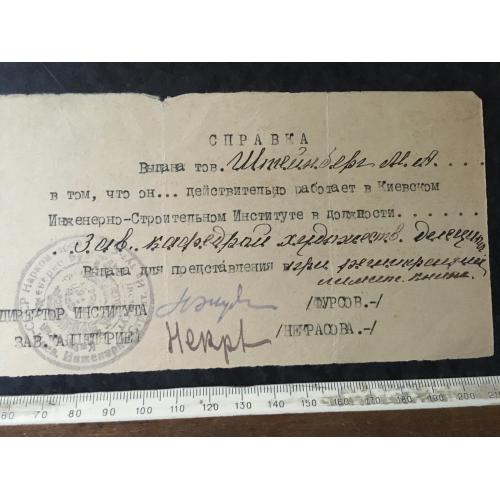 СПРАВКА
Выдана тов. Штейнберг М.А. . . . .
в том, что он... действительно работает в Киевском
Инженерно-Строительном Институте в должности. . . . . . .
Зав. кафедрой художеств.
Выдана для представления в при
ДИРЕКТОР ИНСТИТУТА /ФУРСОВ.-/
ЗАВ.КАНЦЕЛЯРИЕЙ Некр /НЕКРАСОВА.-/
60 70 80 90 100 110 120 130 140 150 160 170 180 190 200 210 220